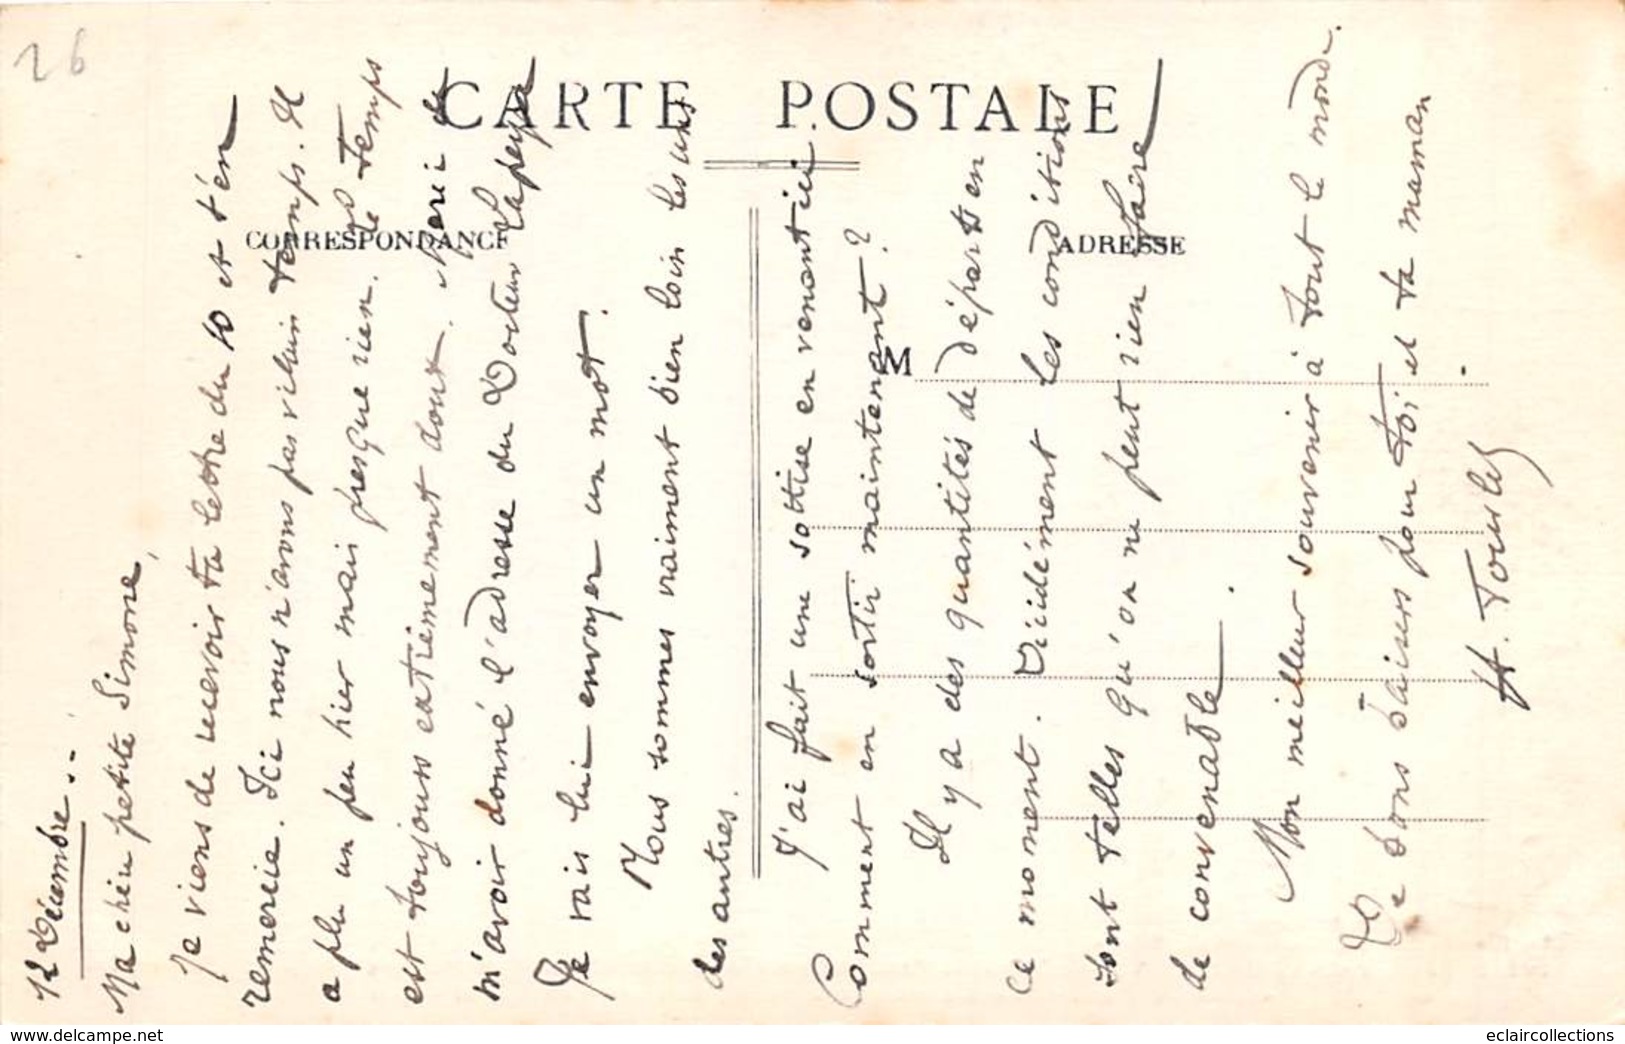 26
CARTE POSTALE
CORRESPONDANCE
ADRESSE
M
12 Décembre.
Ma chère petite Simone,
Je viens de recevoir ta lettre du 10 et t'en
remercie. Ici nous n'avons pas vilain temps. Il
a plu un peu hier mais presque rien. Le temps
est toujours extrêmement doux. Merci de
m'avoir donné l'adresse du Docteur Lapeyre
Je vais lui envoyer un mot.
Nous sommes vraiment bien loin les uns
des autres.
J'ai fait une sottise en venant ici.
Comment en sortir maintenant ?
Il y a des quantités de départs en
ce moment. Décidément les conditions
sont telles qu'on ne peut rien faire
de convenable.
Mon meilleur souvenir à tout le monde.
De bons baisers pour toi et ta maman.
H.
www.delcampe.net
eclaircollections